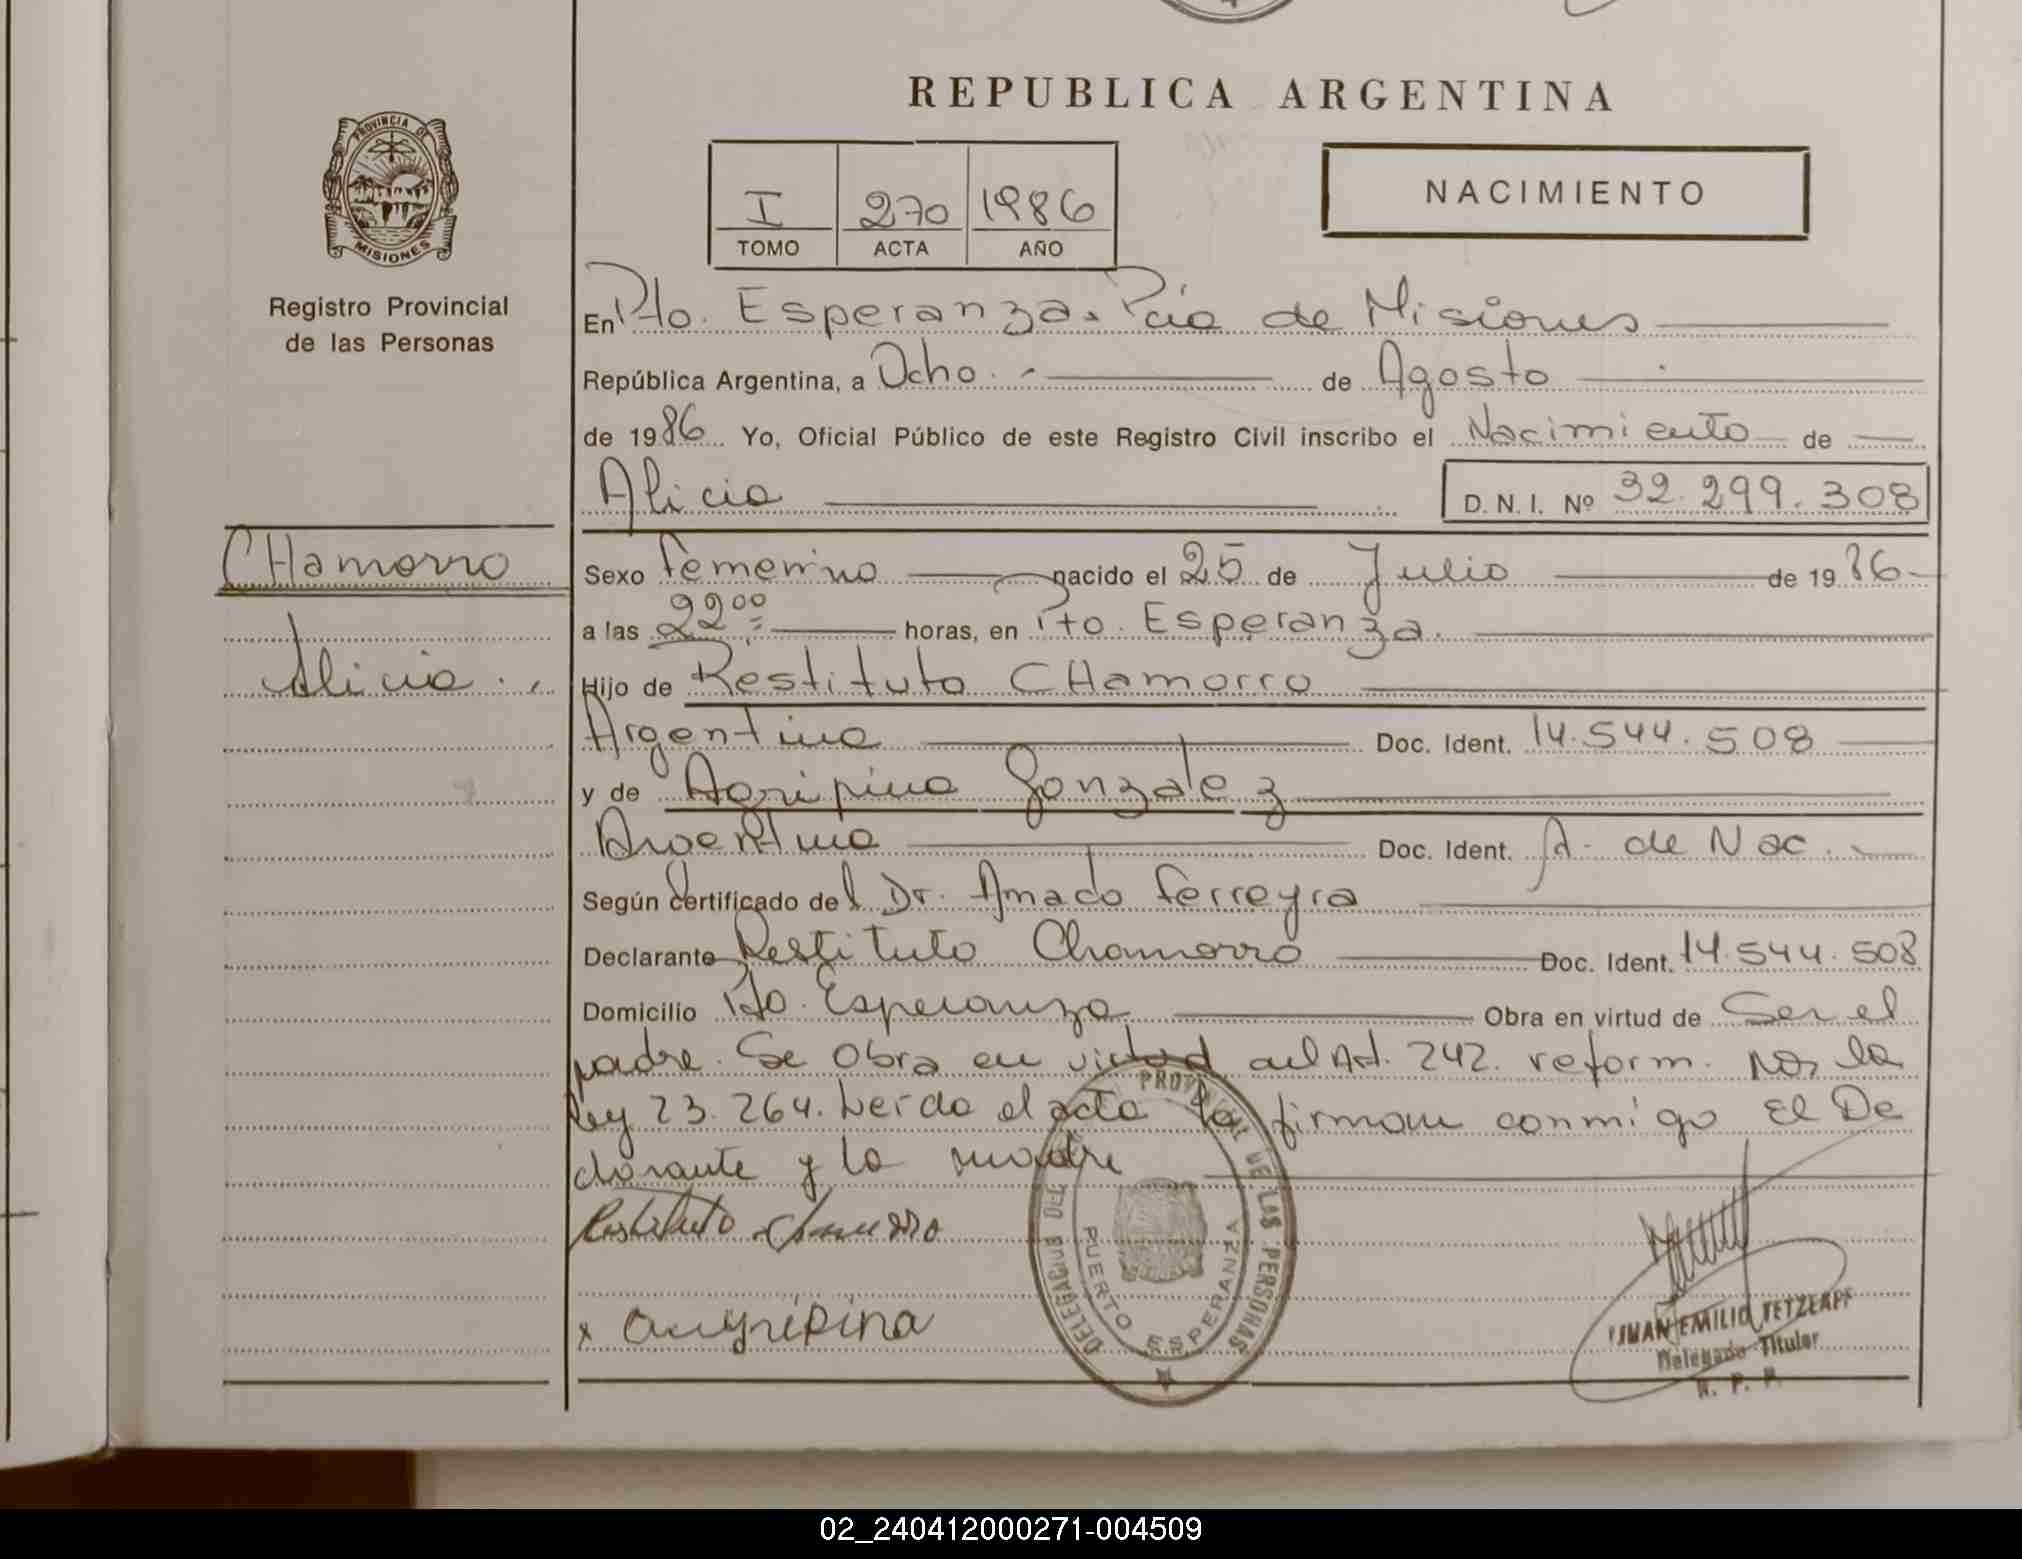 REPUBLICA ARGENTINA
PROVINCIA DE
MISIONES
Registro Provincial
de las Personas
I 270 1986
TOMO ACTA AÑO
NACIMIENTO
En Pto. Esperanza. Pcia de Misiones
República Argentina, a Ocho. de Agosto
de 1986 Yo, Oficial Público de este Registro Civil inscribo el Nacimiento de
Alicia D. N. I. Nº 32.299.308
CHamorro
Alicia
Sexo femenino nacido el 25 de Julio de 1986
a las 22⁰⁰ horas, en Pto. Esperanza.
Hijo de Restituto CHamorro
Argentina Doc. Ident. 14.544.508
y de Agripina Gonzalez
Argentina Doc. Ident. A. de Nac.
Según certificado del Dr. Amado ferreyra
Declarante Restituto Chamorro Doc. Ident. 14.544.508
Domicilio Pto. Esperanza Obra en virtud de Ser el
padre. Se Obra en virtud del Art. 242. reform. por la
ley 23.264. Leida el acta la firman conmigo El De
clarante y la madre
Restituto Chamorro
x Augripina
DELEGACION DEL REGISTRO PROVINCIAL DE LAS PERSONAS
PUERTO ESPERANZA
JUAN EMILIO TETZLAFF
Delegado Titular
R. P. P.
02_240412000271-004509